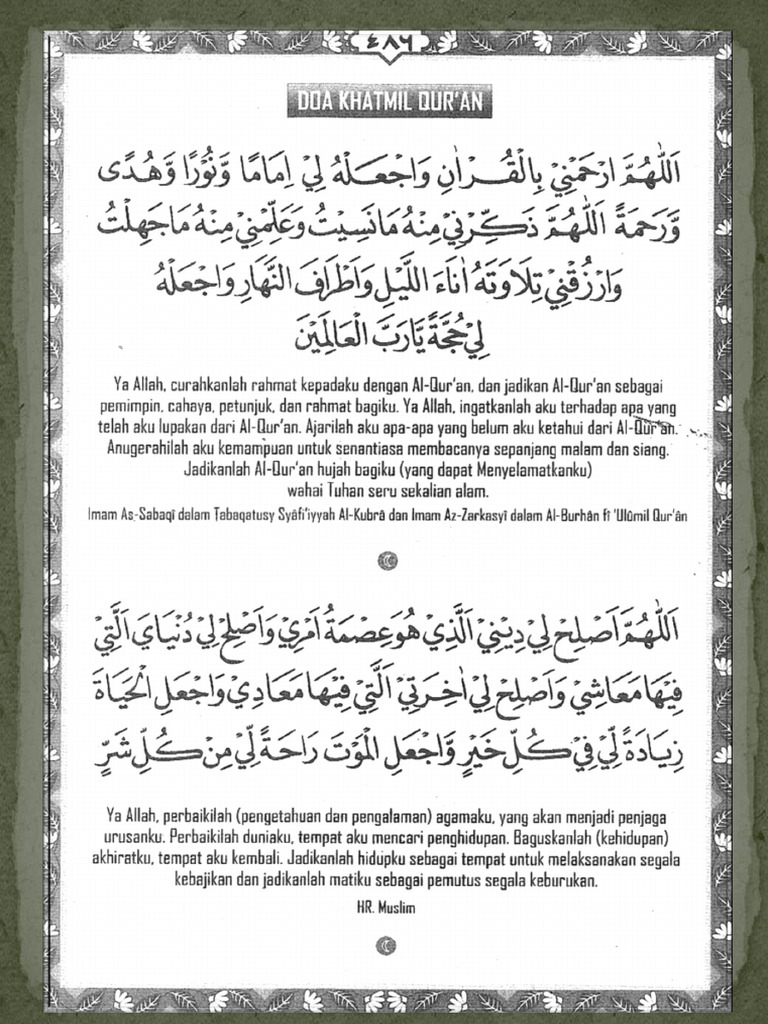 ٤٨٦
DOA KHATMIL QUR'AN
اَللّٰهُمَّ ارْحَمْنِيْ بِالْقُرْاٰنِ وَاجْعَلْهُ لِيْ اِمَامًا وَّنُوْرًا وَّهُدًى
وَّرَحْمَةً اَللّٰهُمَّ ذَكِّرْنِيْ مِنْهُ مَانَسِيْتُ وَعَلِّمْنِيْ مِنْهُ مَاجَهِلْتُ
وَارْزُقْنِيْ تِلَاوَتَهُ اٰنَاءَ اللَّيْلِ وَاَطْرَافَ النَّهَارِ وَاجْعَلْهُ
لِيْ حُجَّةً يَّارَبَّ الْعَالَمِيْنَ
Ya Allah, curahkanlah rahmat kepadaku dengan Al-Qur'an, dan jadikan Al-Qur'an sebagai
pemimpin, cahaya, petunjuk, dan rahmat bagiku. Ya Allah, ingatkanlah aku terhadap apa yang
telah aku lupakan dari Al-Qur'an. Ajarilah aku apa-apa yang belum aku ketahui dari Al-Qur'an.
Anugerahilah aku kemampuan untuk senantiasa membacanya sepanjang malam dan siang.
Jadikanlah Al-Qur'an hujah bagiku (yang dapat Menyelamatkanku)
wahai Tuhan seru sekalian alam.
Imam As-Sabaqî dalam Tabaqatusy Syâfi'iyyah Al-Kubrâ dan Imam Az-Zarkasyî dalam Al-Burhân fî 'Ulûmil Qur'ân
اَللّٰهُمَّ اَصْلِحْ لِيْ دِيْنِيْ الَّذِيْ هُوَ عِصْمَةُ اَمْرِيْ وَاَصْلِحْ لِيْ دُنْيَايَ الَّتِيْ
فِيْهَا مَعَاشِيْ وَاَصْلِحْ لِيْ اٰخِرَتِيْ الَّتِيْ فِيْهَا مَعَادِيْ وَاجْعَلِ الْحَيَاةَ
زِيَادَةً لِّيْ فِيْ كُلِّ خَيْرٍ وَّاجْعَلِ الْمَوْتَ رَاحَةً لِّيْ مِنْ كُلِّ شَرٍّ
Ya Allah, perbaikilah (pengetahuan dan pengalaman) agamaku, yang akan menjadi penjaga
urusanku. Perbaikilah duniaku, tempat aku mencari penghidupan. Baguskanlah (kehidupan)
akhiratku, tempat aku kembali. Jadikanlah hidupku sebagai tempat untuk melaksanakan segala
kebajikan dan jadikanlah matiku sebagai pemutus segala keburukan.
HR. Muslim